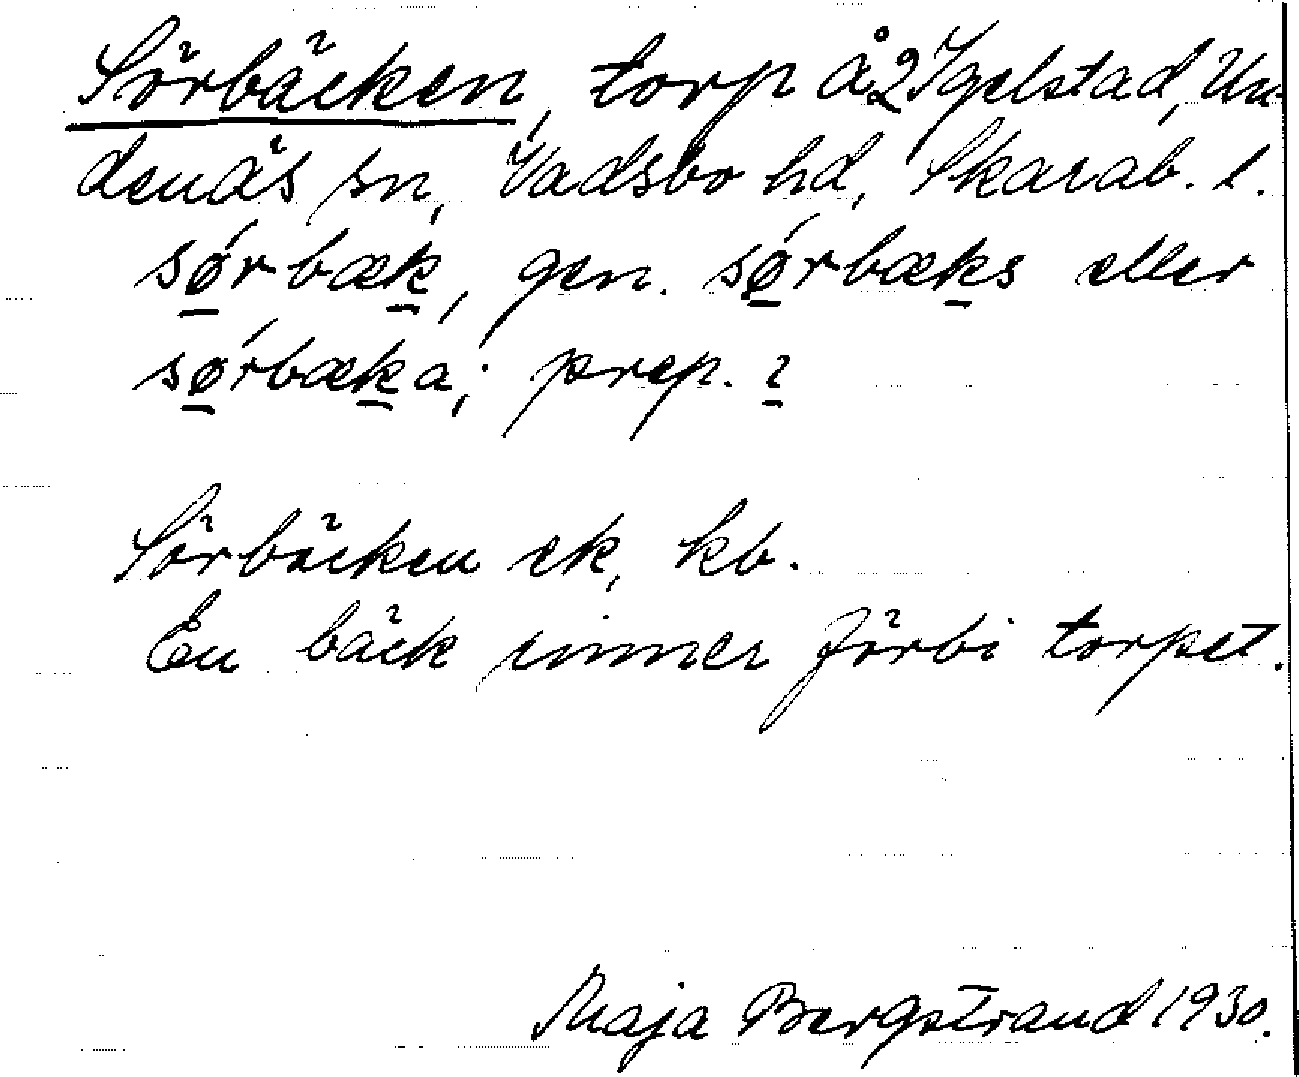 Sörbäcken, torp å 2 Igelstad, Un-
denäs sn, Vadsbo hd, Skarab. l.
sǿrbæk, gen. sǿrbæks eller
sǿrbæka; prep. ı
Sörbäcken ek, kb.
En bäck rinner förbi torpet.
Maja Bergstrand 1930.